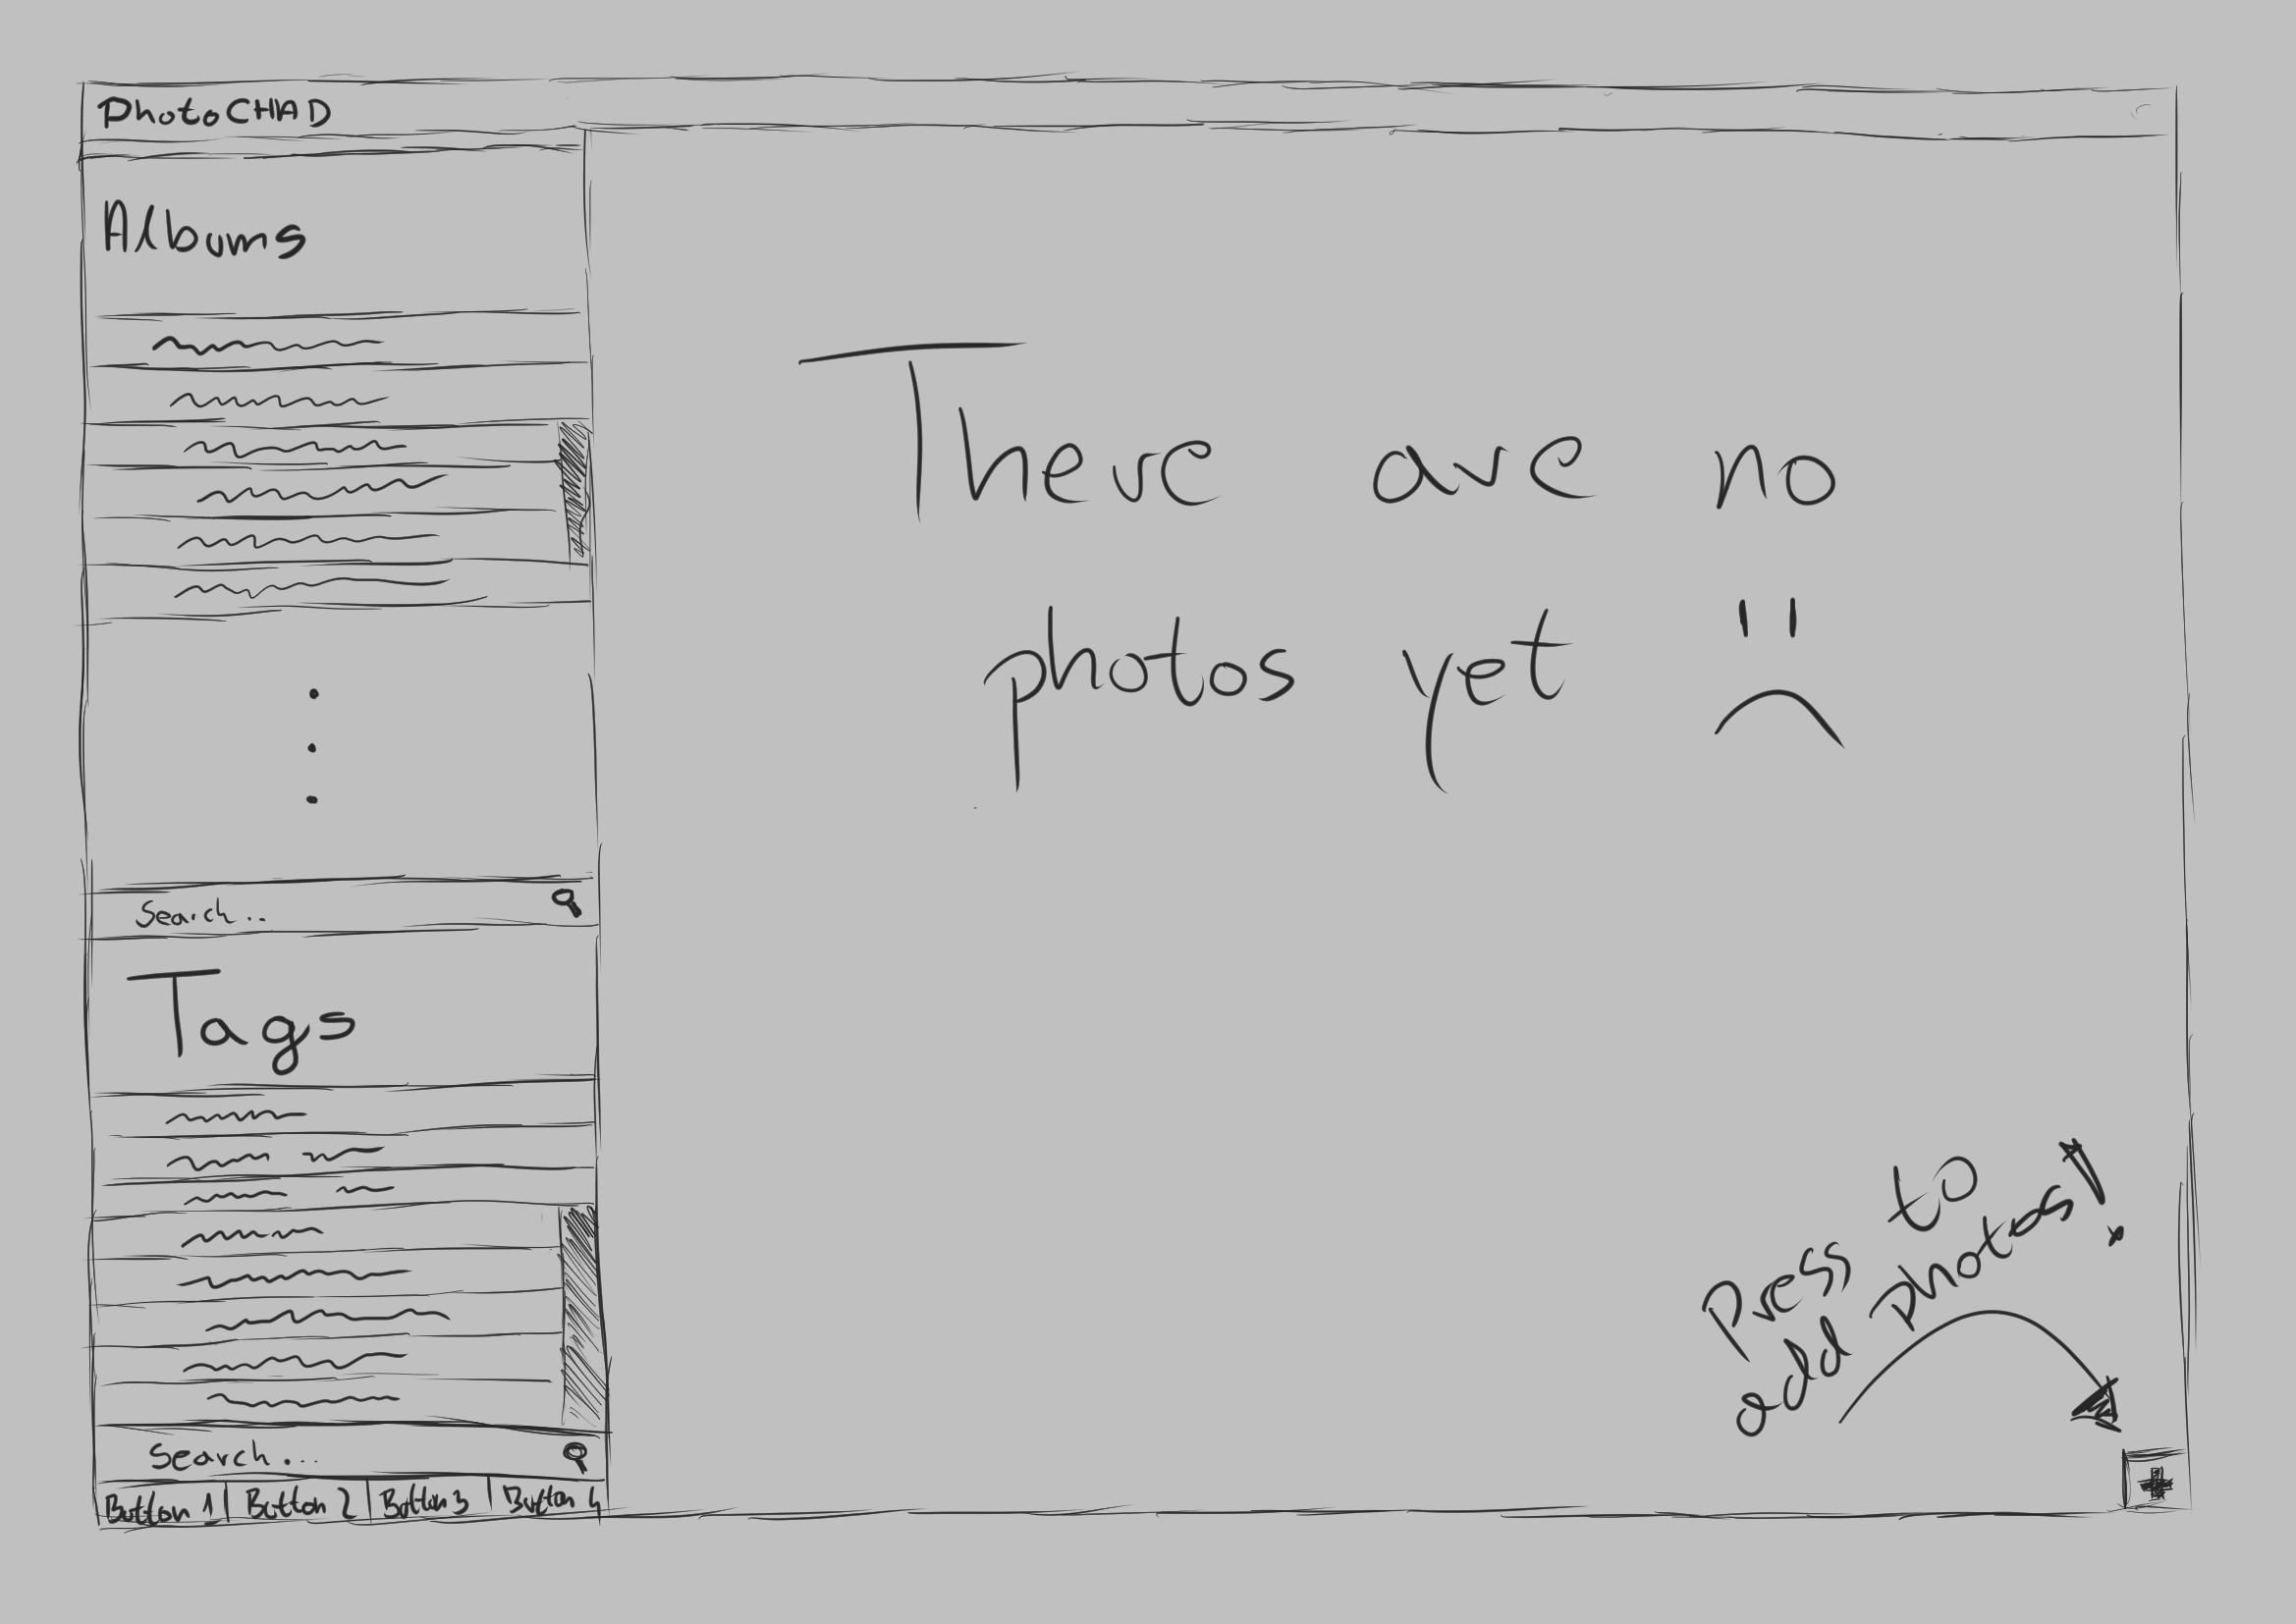 PhotoCHAD
Albums
Search...
Tags
Search...
Button 1
Button 2
Button 3
Button 4
There are no
photos yet
Press to
add photos!
+